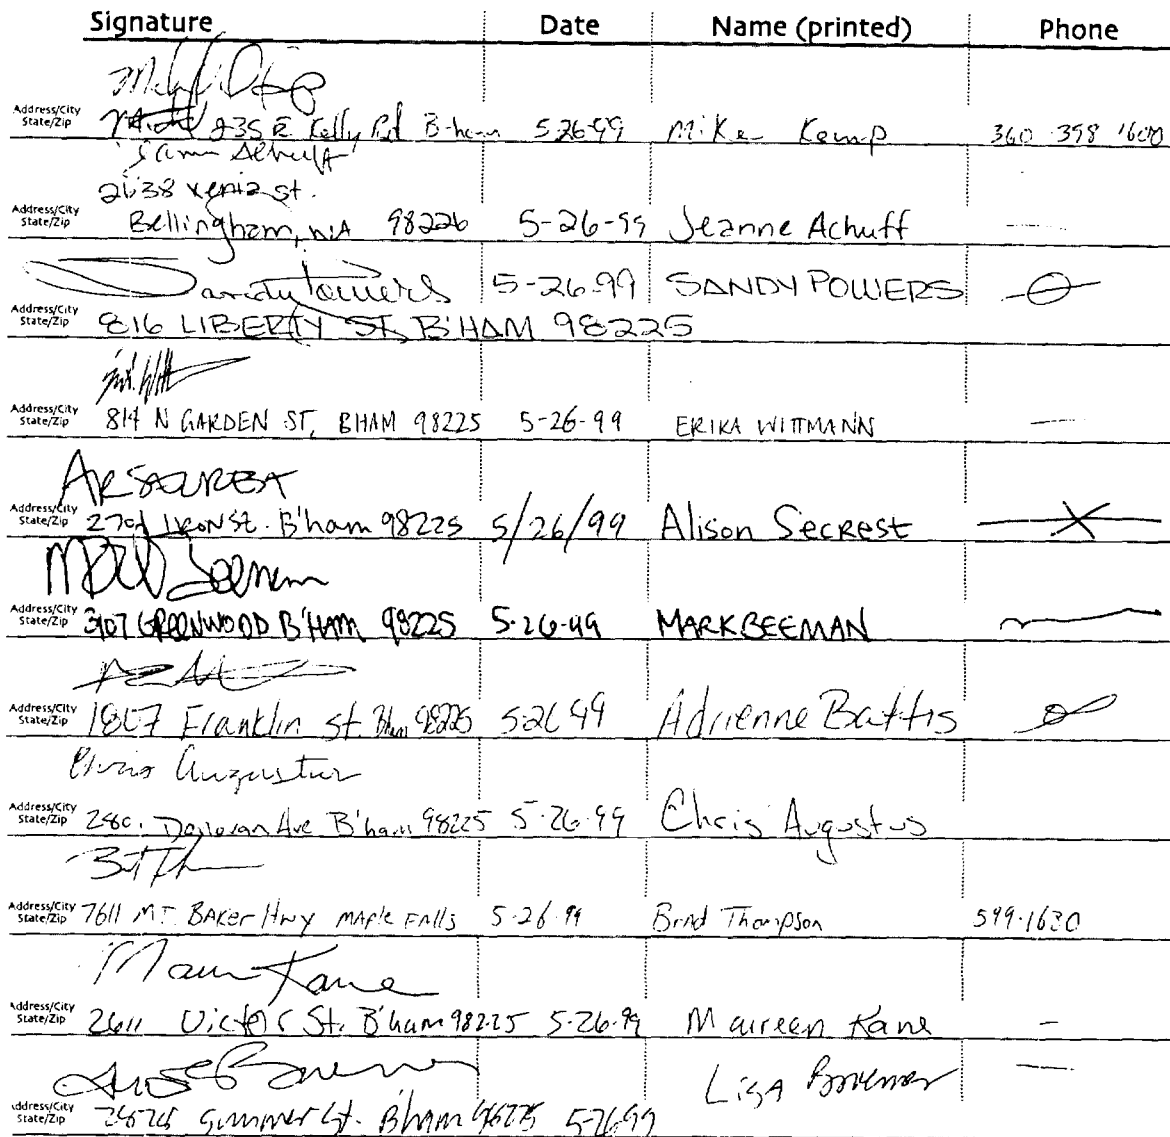 Signature Date Name (printed) Phone
Address/City
State/Zip
235 E. Kelly Rd B-ham 5-26-99 Mike Kemp 360 398 1600
2638 Xenia st.
Address/City
State/Zip
Bellingham, WA 98226 5-26-99 Jeanne Achuff —
Sandy Powers 5-26-99 SANDY POWERS
Address/City
State/Zip
816 LIBERTY ST, B'HAM 98225
Address/City
State/Zip
814 N GARDEN ST, BHAM 98225 5-26-99 ERIKA WITTMANN —
Address/City
State/Zip
IRON St. B'ham 98225 5/26/99 Alison Secrest X
Address/City
State/Zip
3107 GREENWOOD B'HAM 98225 5-26-99 MARK BEEMAN
Address/City
State/Zip
1807 Franklin St. Bham 98225 5 26 99 Adrienne Battis
Chris Augustus
Address/City
State/Zip
Donovan Ave B'ham 98225 5-26-99 Chris Augustus
Address/City
State/Zip
7611 MT BAKER Hwy MAPLE FALLS 5-26-99 Brad Thompson 599-1630
Maureen Kane
Address/City
State/Zip
2611 Victor St. B'ham 98225 5-26-99 Maureen Kane —
LISA —
Address/City
State/Zip
St. B'ham 98225 5-26-99